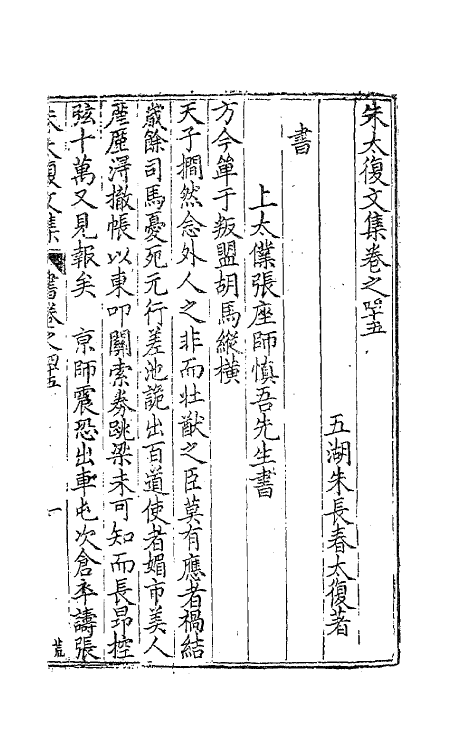 朱太復文集卷之四十五
五湖朱長春太復著
書
上太僕張座師慎吾先生書
方今單于叛盟胡馬縱橫
天子撊然念外人之非而壯猷之臣莫有應者禍結
歲餘司馬憂死元行差池詭出百道使者媚市美人
廑廑得撤帳以東叩關索券跳梁未可知而長昂控
弦十萬又見報矣 京師震恐出車屯次倉卒譸張
朱太復文集 書卷之四十五 一